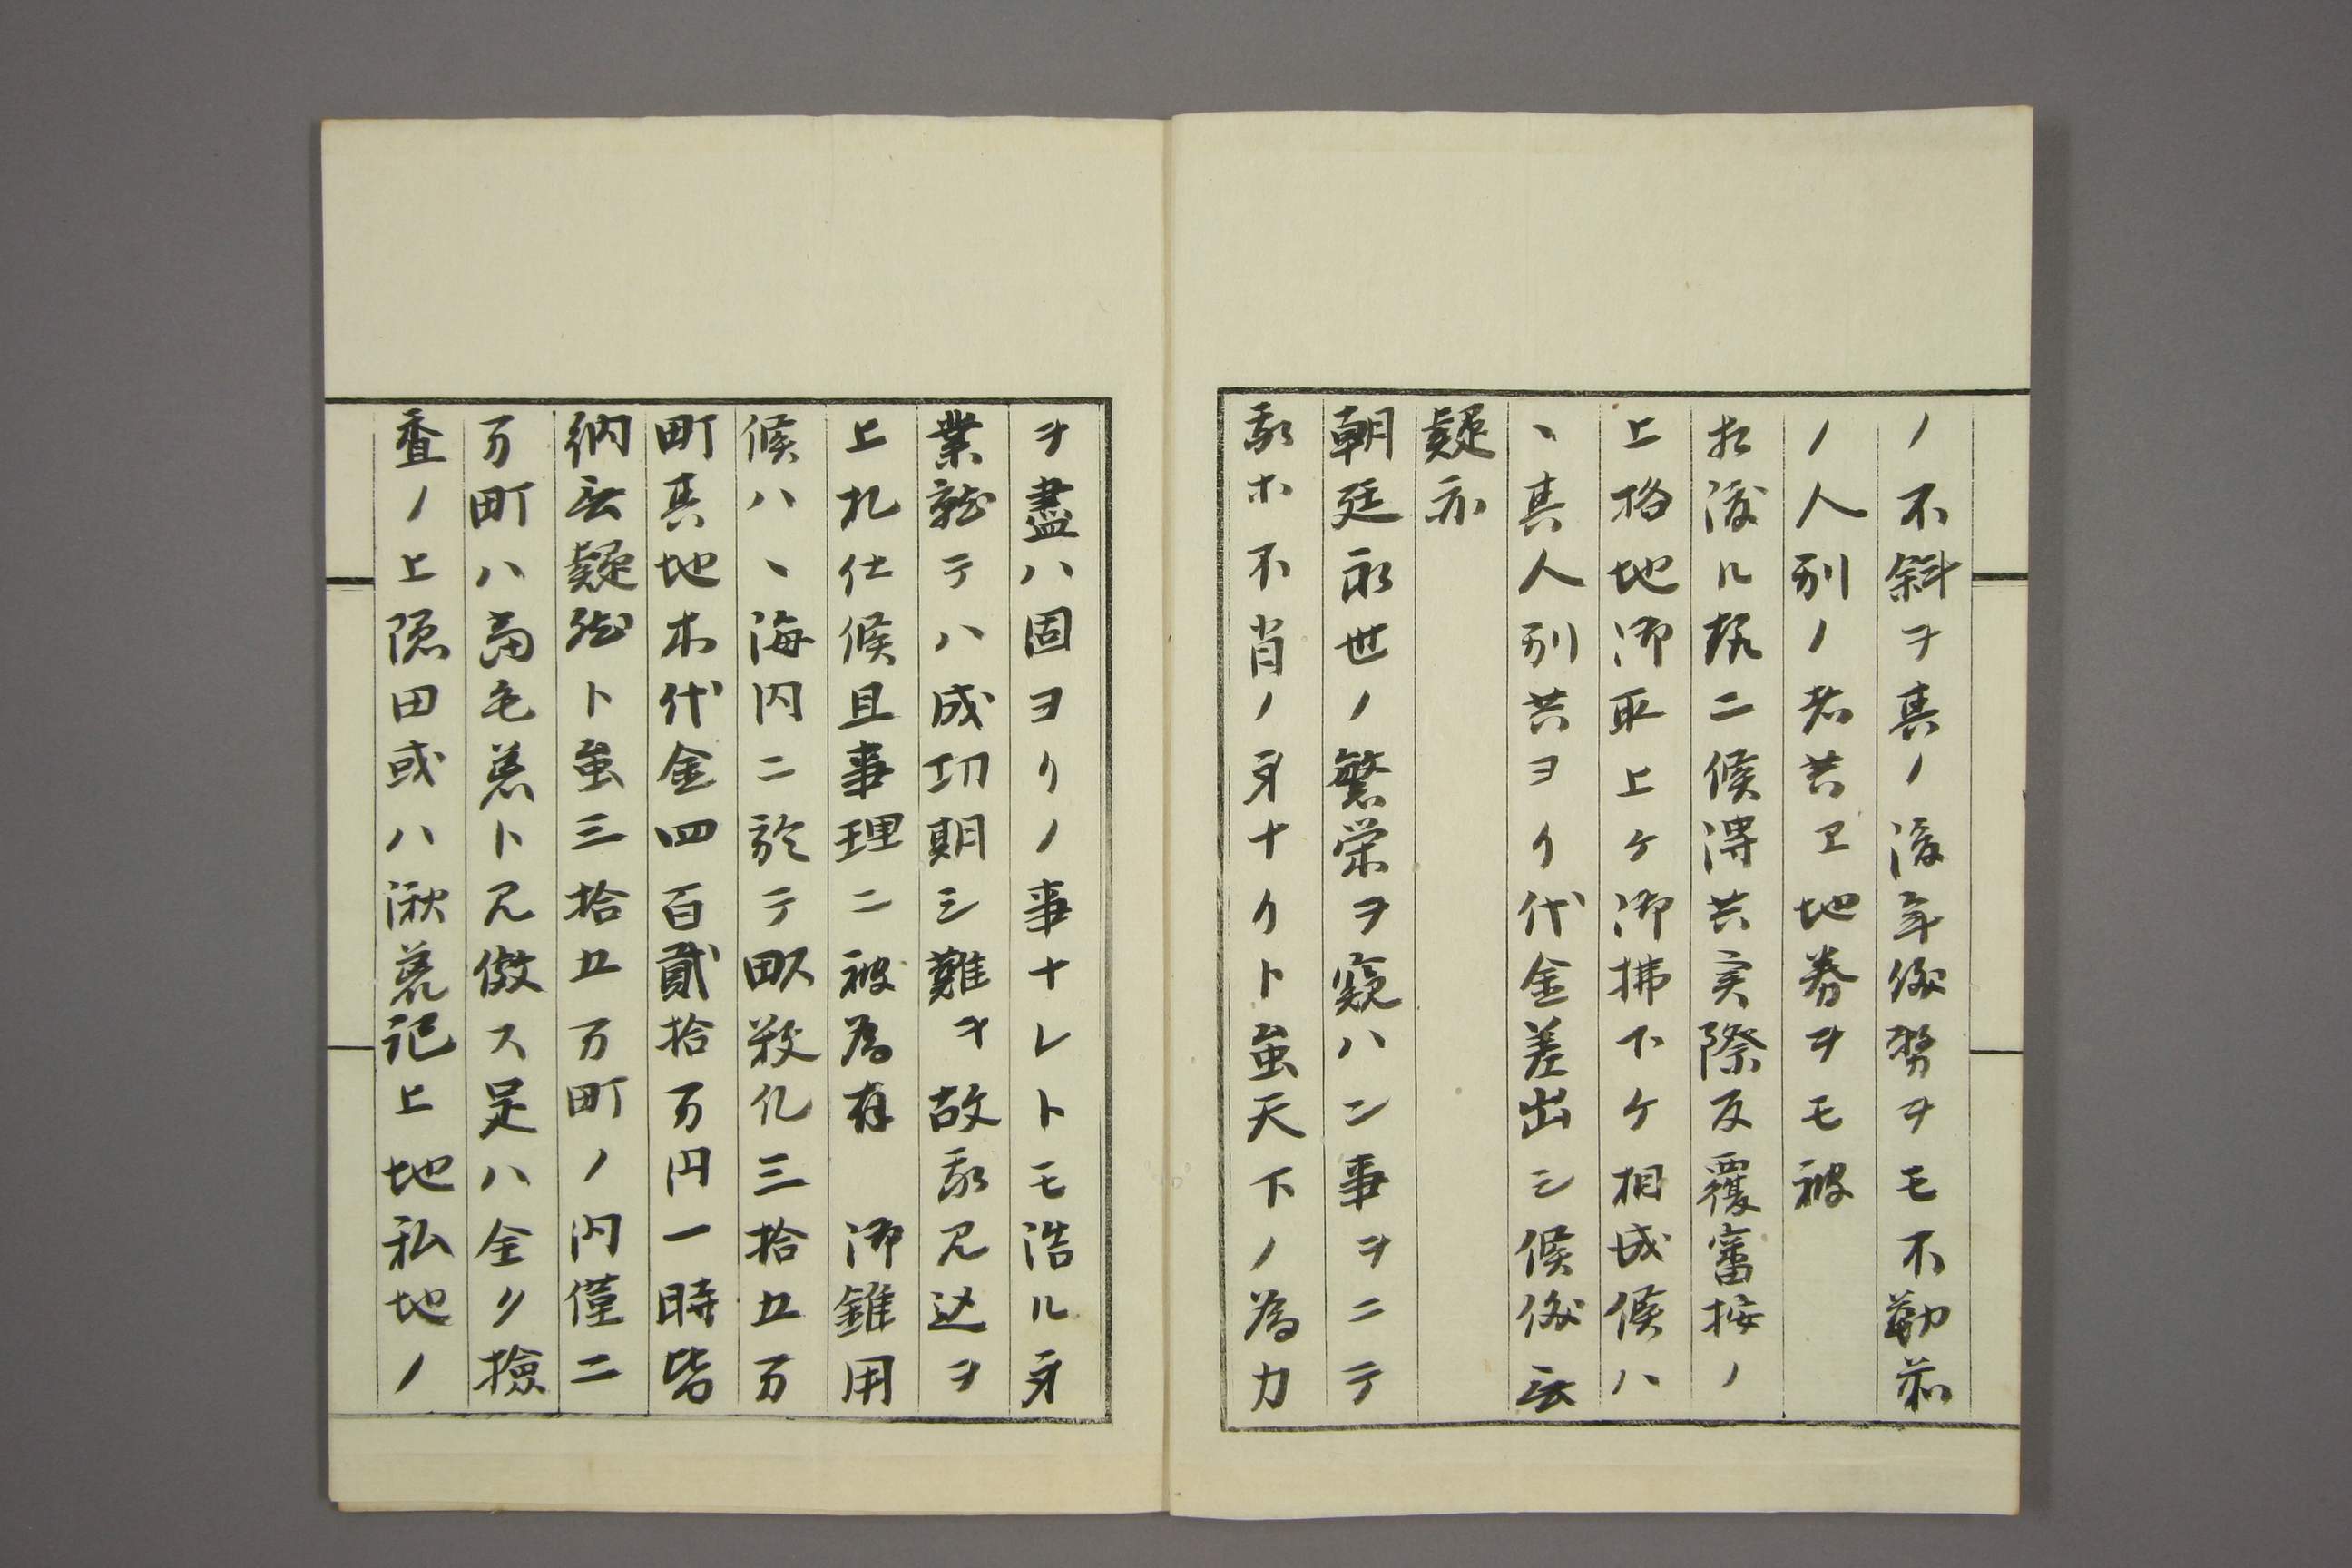 ノ不斜ヲ其ノ後年役努ヲモ不勤前
ノ人別ノ者共ヱ地券ヲモ被
相渡ル故ニ候得共実際反覆審按ノ
上格地御取上ケ御拂下ケ相成候ハ
、其人別共ヨリ代金差出シ候儀無
疑亦
朝廷永世ノ繁栄ヲ窺ハン事ヲニテ
我ホ不肖ノ身ナリト虽天下ノ為力
ヲ盡ハ固ヨリノ事ナレトモ浩ル身
業就テハ成功期シ難キ故我見込ヲ
上札仕候且事理ニ被為有 御錐用
候ハ、海内ニ於テ畎数凡三拾五万
町其地木代金四百貳拾万円一時皆
納無疑然ト虽三拾五万町ノ内僅ニ
万町ハ毛荒ト見做ス足ハ全ク撿
査ノ上隠田或ハ荒記上地私地ノ